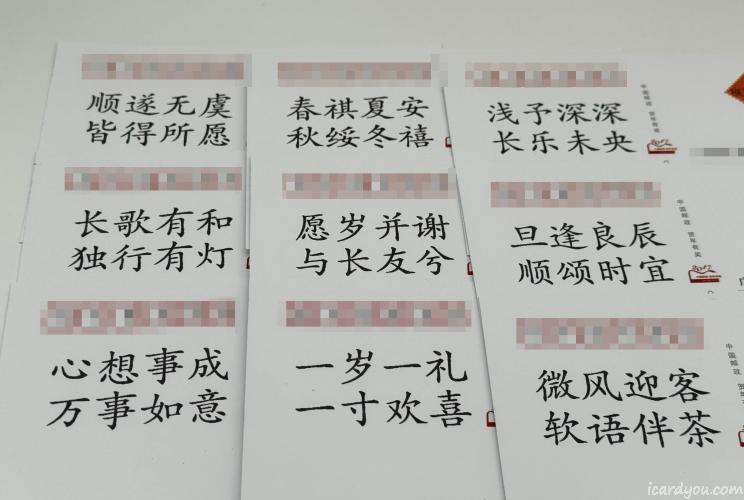 顺遂无虞
皆得所愿
春祺夏安
秋绥冬禧
浅予深深
长乐未央
中国邮政 贺年有奖
长歌有和
独行有灯
愿岁并谢
与长友兮
旦逢良辰
顺颂时宜
中国邮政 贺年有奖
心想事成
万事如意
一岁一礼
一寸欢喜
微风迎客
软语伴茶
中国邮政 贺年有奖
icardyou.com